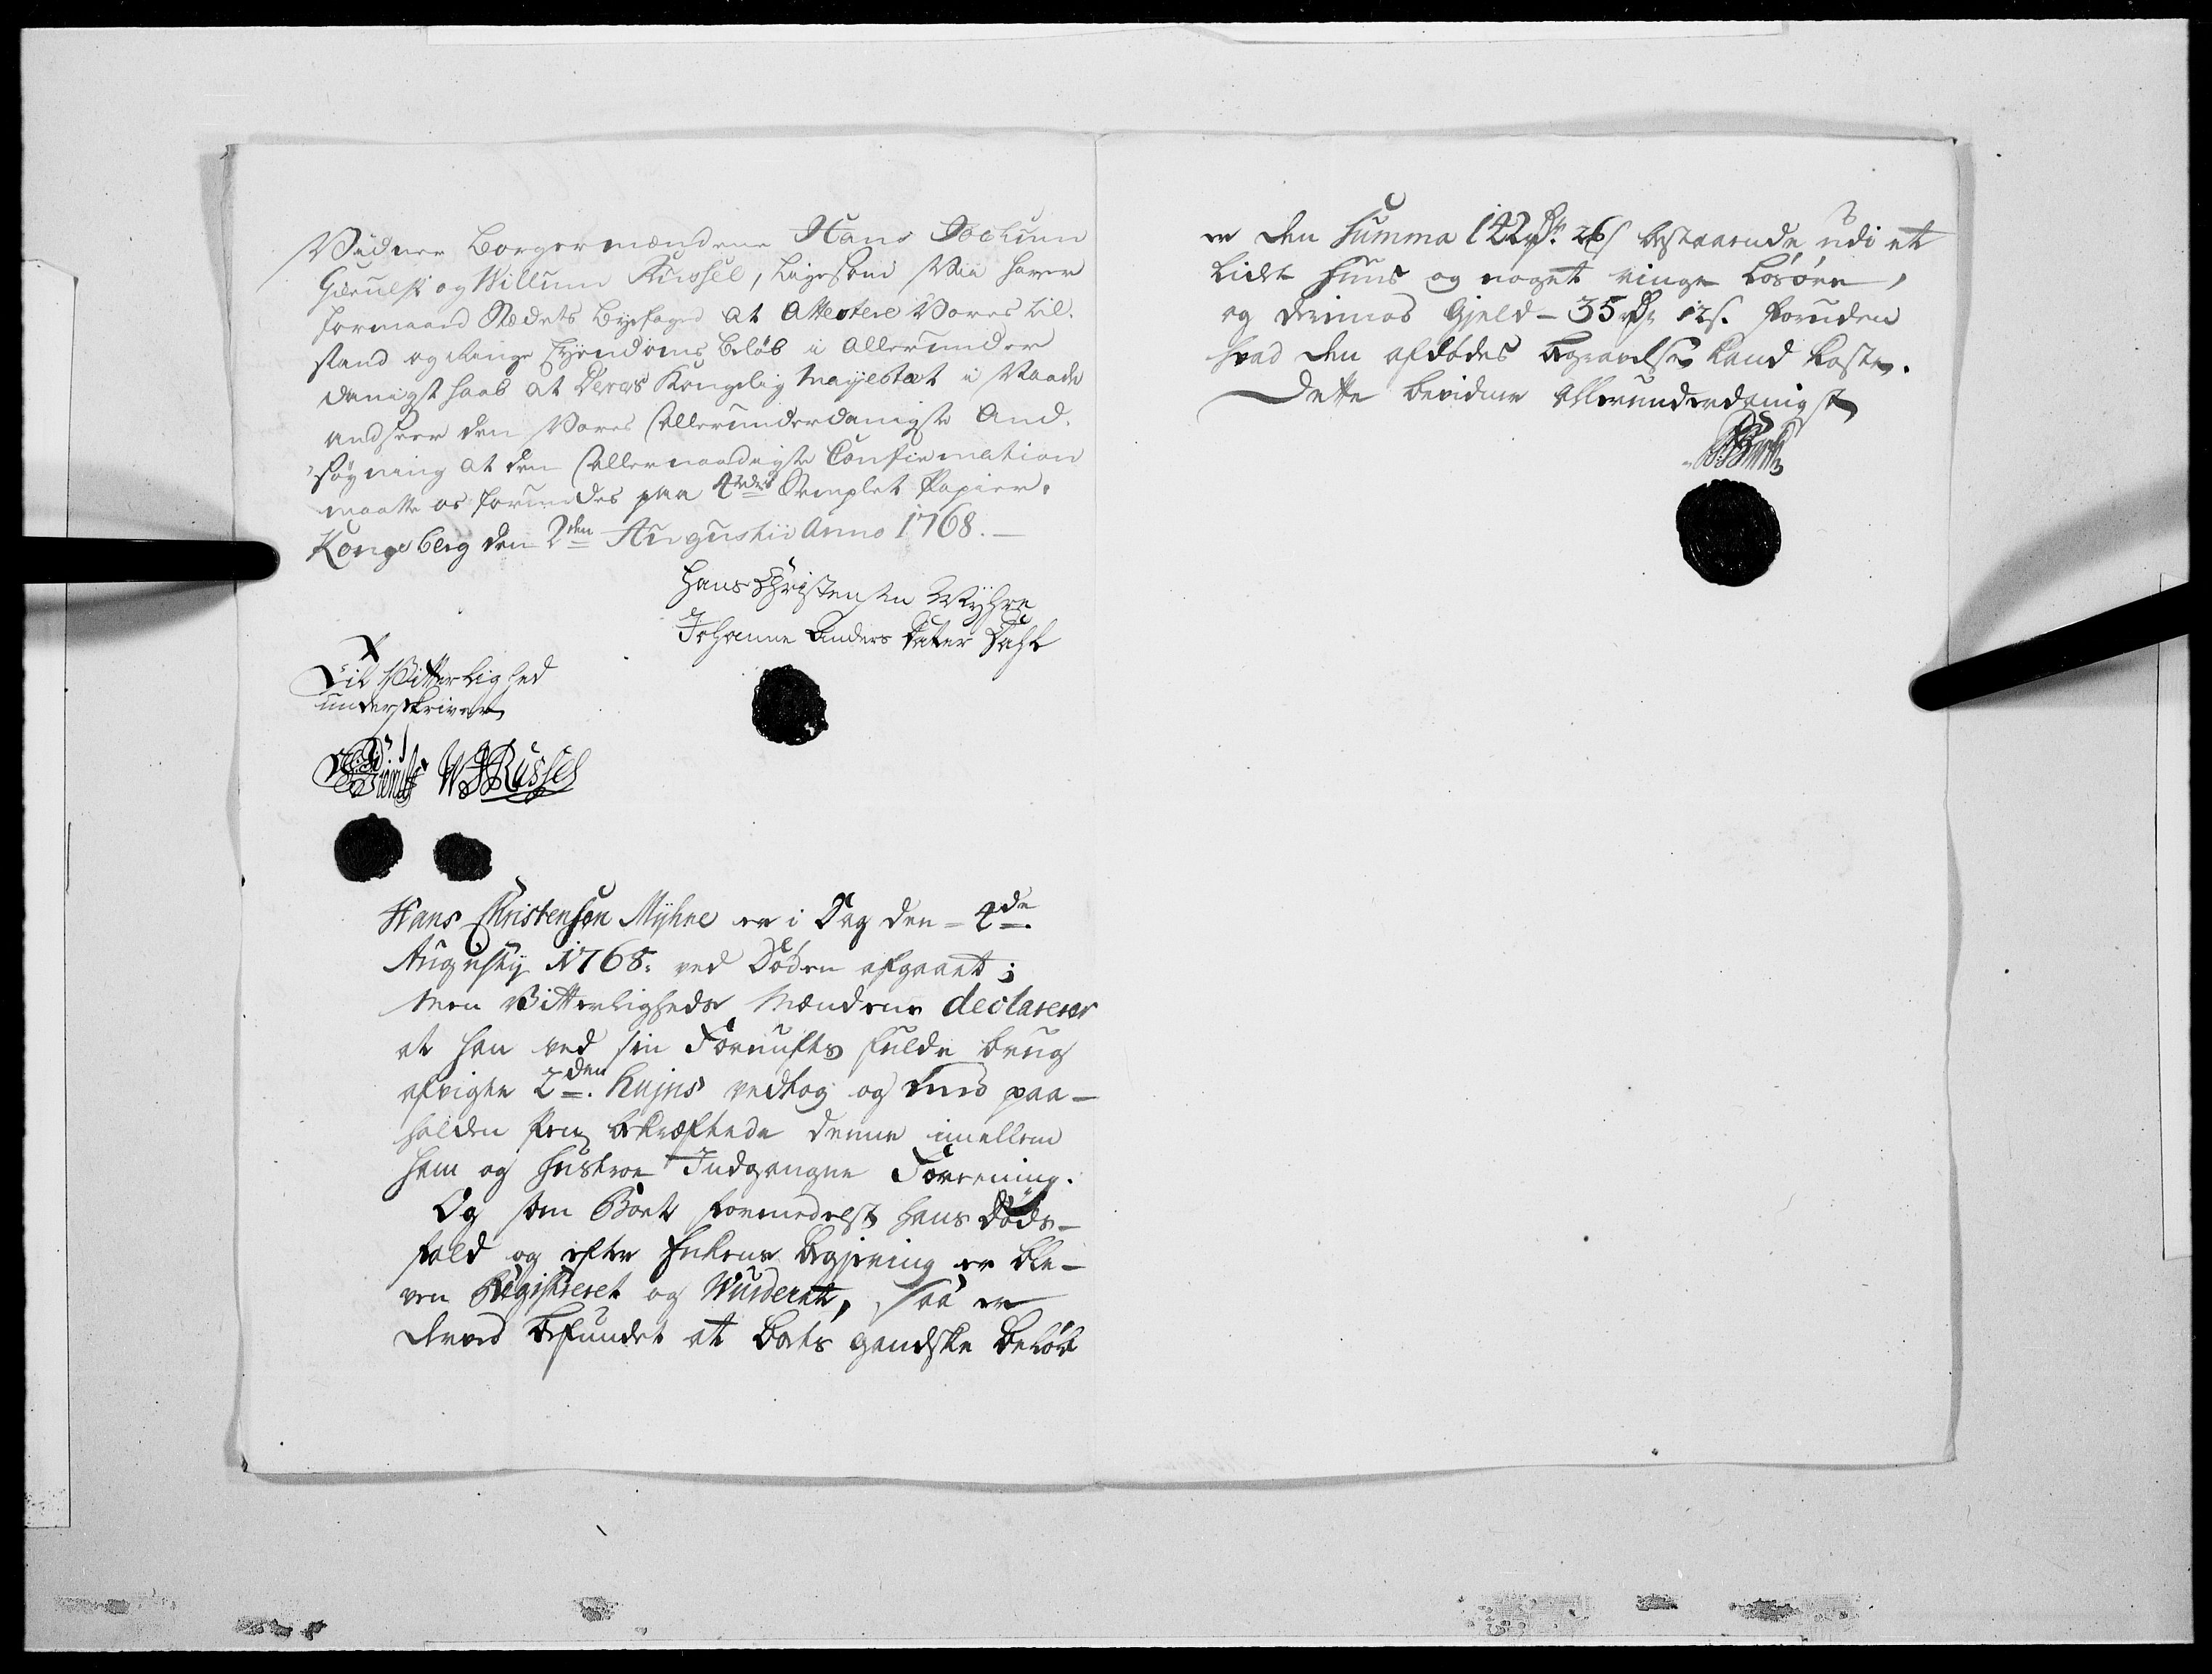 Vidner Borgermændene Hans Jochum
og Willum Russel, ligesom Vii haver
formaaed Stædets Byefoged at Attestere Vores til-
stand og ringe Eyendoms beløb i Allerunder
danigst haab at Deres Kongelig Mayestæt i Naade
andseer den Vores Allerunderdanigste And-
søgning at den Allernaadigste Confirmation
maatte os forundes paa Stemplet Papier.
Kongsberg den 2den Augustii Anno 1768.
Hans Christensen Myhre
Johanne Anders Datter Dahl
Til Vitterlighed
underskriver
Russel
Hans Christensen Myhre er i Dag den 4de
Augusty 1768. ved Døden afgaaet;
Men Vitterligheds Mændene declarerer
at han ved sin Fornufts fulde brug
afvigte 2den hujus vedtog og med paa-
holden Pen bekræftede denne imellem
ham og Hustroe Indgangne Foreening.
Og som Boet formedelst hans Døds-
fald og efter Enkens begiering er ble-
ven Registreret og Wurderet, saa er
derved befundet at Boets gandske beløb
er den Summa 142 rdr. 26 s bestaaende udi et
lidet Huus og noget ringe løsøre,
og derimod Gjeld - 35 rdr 12 s. foruden
hvad den afdødes begravelse kand koste.
Dette bevidner Allerunderdanigst